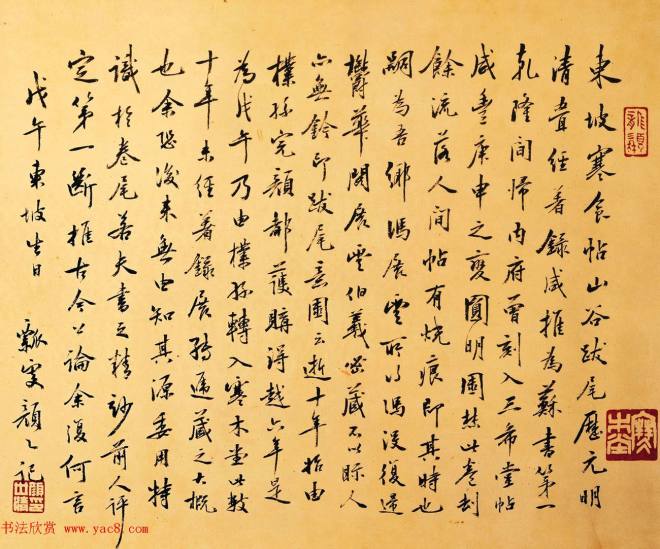 東坡寒食帖山谷跋尾歷元明
清疊經著錄咸推為蘇書第一
乾隆間歸內府曾刻入三希堂帖
咸豐庚申之變圓明園焚此卷劫
餘流落人間帖有燒痕即其時也
嗣為吾鄉馮展雲所得馮沒復
鬱華閣伯羲密藏不以眎人
亦無鈐印跋尾意園云逝十年始由
樸孫完顏都護購得越六年是
為戊午乃由樸孫轉入寒木堂此數
十年未經著錄展轉遞藏之大概
也余恐後來無由知其源委用特
識於卷尾若夫書之精妙前人評
定第一斷推古今公論余復何言
戊午東坡生日
瓢叟顏記
寒木堂
书法欣赏 www.yac8.com